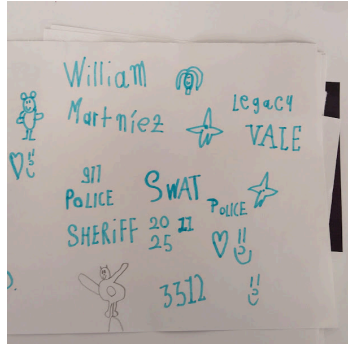 William
Martniez
Legacy
VALE
911
POLICE
SWAT
POLICE
SHERiFF 20 11
25
3312